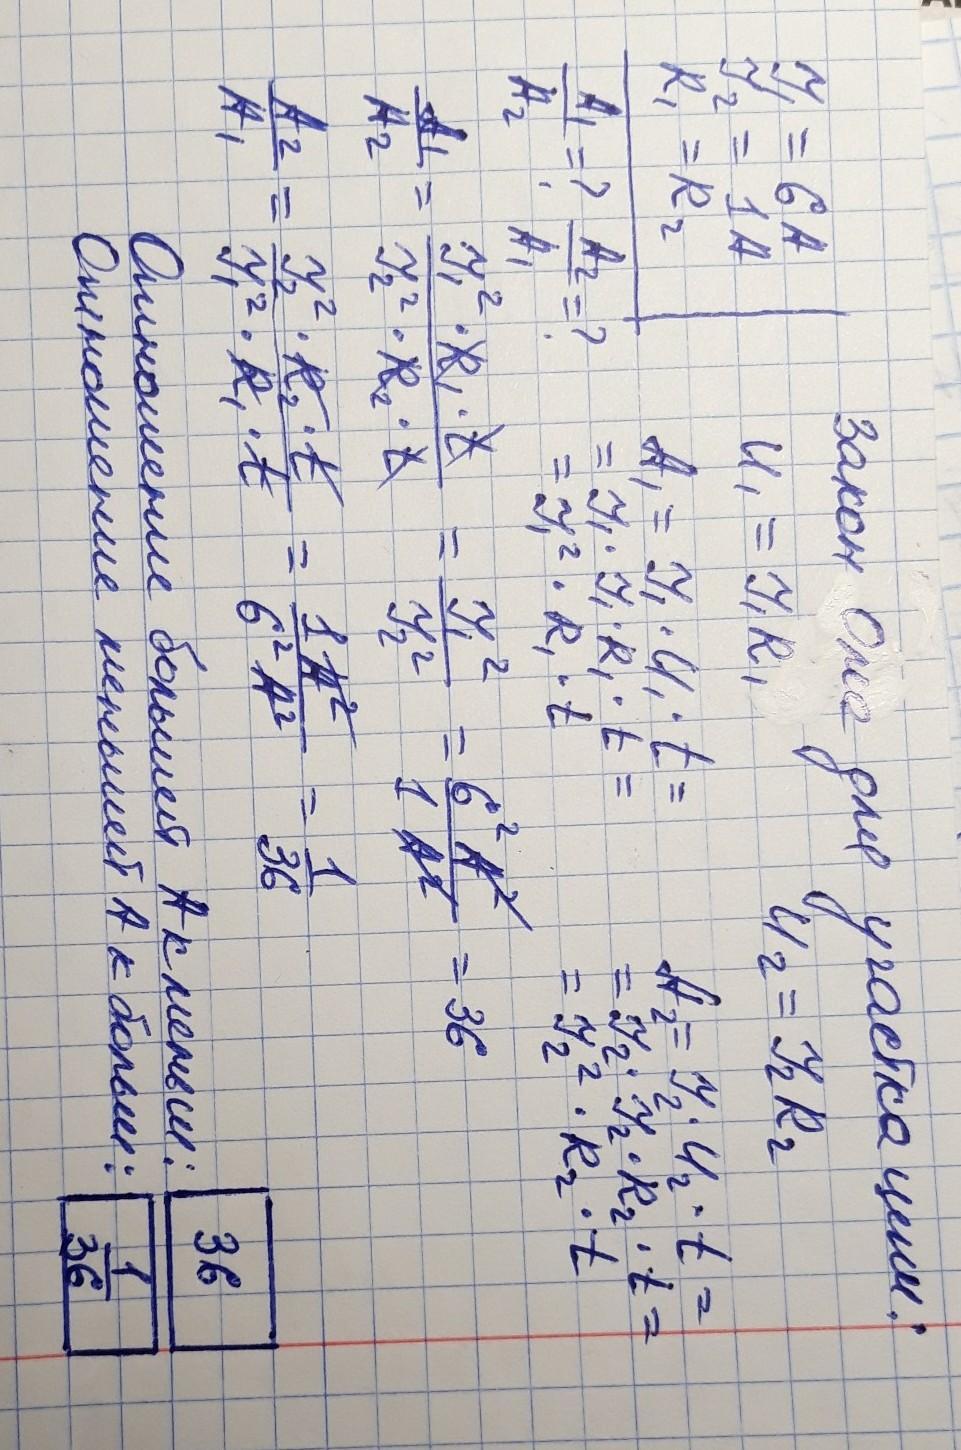 Закон Ома для участка цепи:
I₁ = 6A
I₂ = 1A
R₁ = R₂
U₁ = I₁R₁ U₂ = I₂R₂
A₁/A₂ = ? A₂/A₁ = ?
A₁ = I₁ · U₁ · t =
= I₁ · I₁ · R₁ · t =
= I₁² · R₁ · t
A₂ = I₂ · U₂ · t =
= I₂ · I₂ · R₂ · t =
= I₂² · R₂ · t
A₁/A₂ = (I₁² · R₁ · t)/(I₂² · R₂ · t) = I₁²/I₂² = (6² A²)/(1 A²) = 36
A₂/A₁ = (I₂² · R₂ · t)/(I₁² · R₁ · t) = (1 A²)/(6² A²) = 1/36
Отношение большей A к меньш: 36
Отношение меньшей A к больш: 1/36